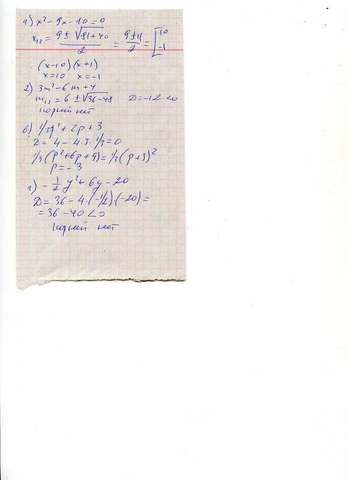 а) x² - 9x - 10 = 0
x₁,₂ = (9 ± √(81+40))/2 = (9 ± 11)/2 = [10 -1
(x-10)(x+1)
x=10 x=-1
2) 3m² - 6m + 4
m₁,₂ = 6 ± √(36-48) D = -12 < 0
корней нет
в) 1/3p² + 2p + 3
D = 4 - 4·3·1/3 = 0
1/3(p² + 6p + 9) = 1/3(p+3)²
p = -3
г) -1/2 y² + 6y - 20
D = 36 - 4·(-1/2)(-20) =
= 36 - 40 < 0
корней нет